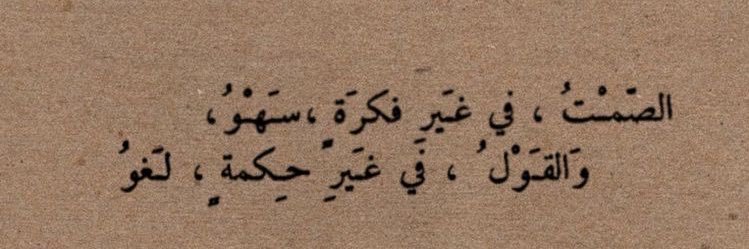 الصّمْتُ ، في غَيرِ فكرَةٍ ،سَهْوُ،
وَالقَوْلُ ، في غَيرِ حِكمةٍ ، لَغوُ